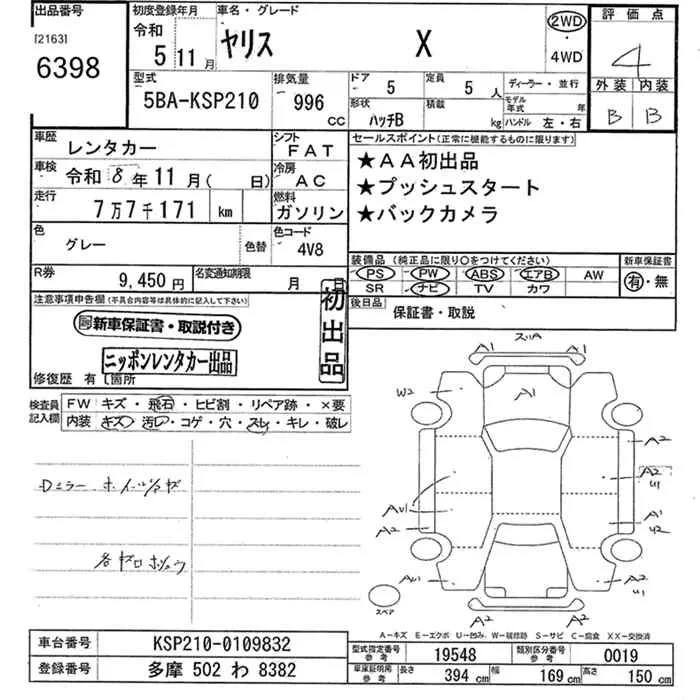 出品番号
[2163]
6398
初度登録年月
令和
5 11 月
車名・グレード
ヤリス X
2WD
・
4WD
評価点
4
外装 内装
B B
型式
5BA-KSP210
排気量
996
cc
ドア
5
定員
5 人
ディーラー・並行
形状
ハッチB
積載
kg
モデル年式 年
ハンドル 左・右
車歴
レンタカー
シフト
FAT
車検
令和 8 年 11 月 ( 日)
冷房
AC
走行
7万7千171 km
燃料
ガソリン
色
グレー
色替
色コード
4V8
R券
9,450 円
名変通知期限
月 日
セールスポイント(正常に機能するものに限ります)
★AA初出品
★プッシュスタート
★バックカメラ
装備品 (純正品に限り○をつけてください)
PS PW ABS エアB AW
SR ナビ TV カワ
新車保証書
有・無
後日品
保証書・取説
注意事項申告欄(不具合内容等は具体的に記入して下さい)
新車保証書・取説付き
初出品
ニッポンレンタカー出品
修復歴 有 [箇所
検査員
記入欄
FW キズ・飛石・ヒビ割・リペア跡・×要
内装 キズ・汚レ・コゲ・穴・スレ・キレ・破レ
Dミラー ホイールキズ
スリA
A1 A1
W2
A1
A2
A2
U1
AU1
A1
A2
AU1
A2
U1
A2 A2
スペア
A-キズ E-エクボ U-凹み W-補修跡 S-サビ C-腐食 XX-交換済
車台番号
KSP210-0109832
登録番号
多摩 502 わ 8382
型式指定番号
参考
19548
類別区分番号
参考
0019
車庫証明用
参考
長さ
394 cm
幅
169 cm
高さ
150 cm